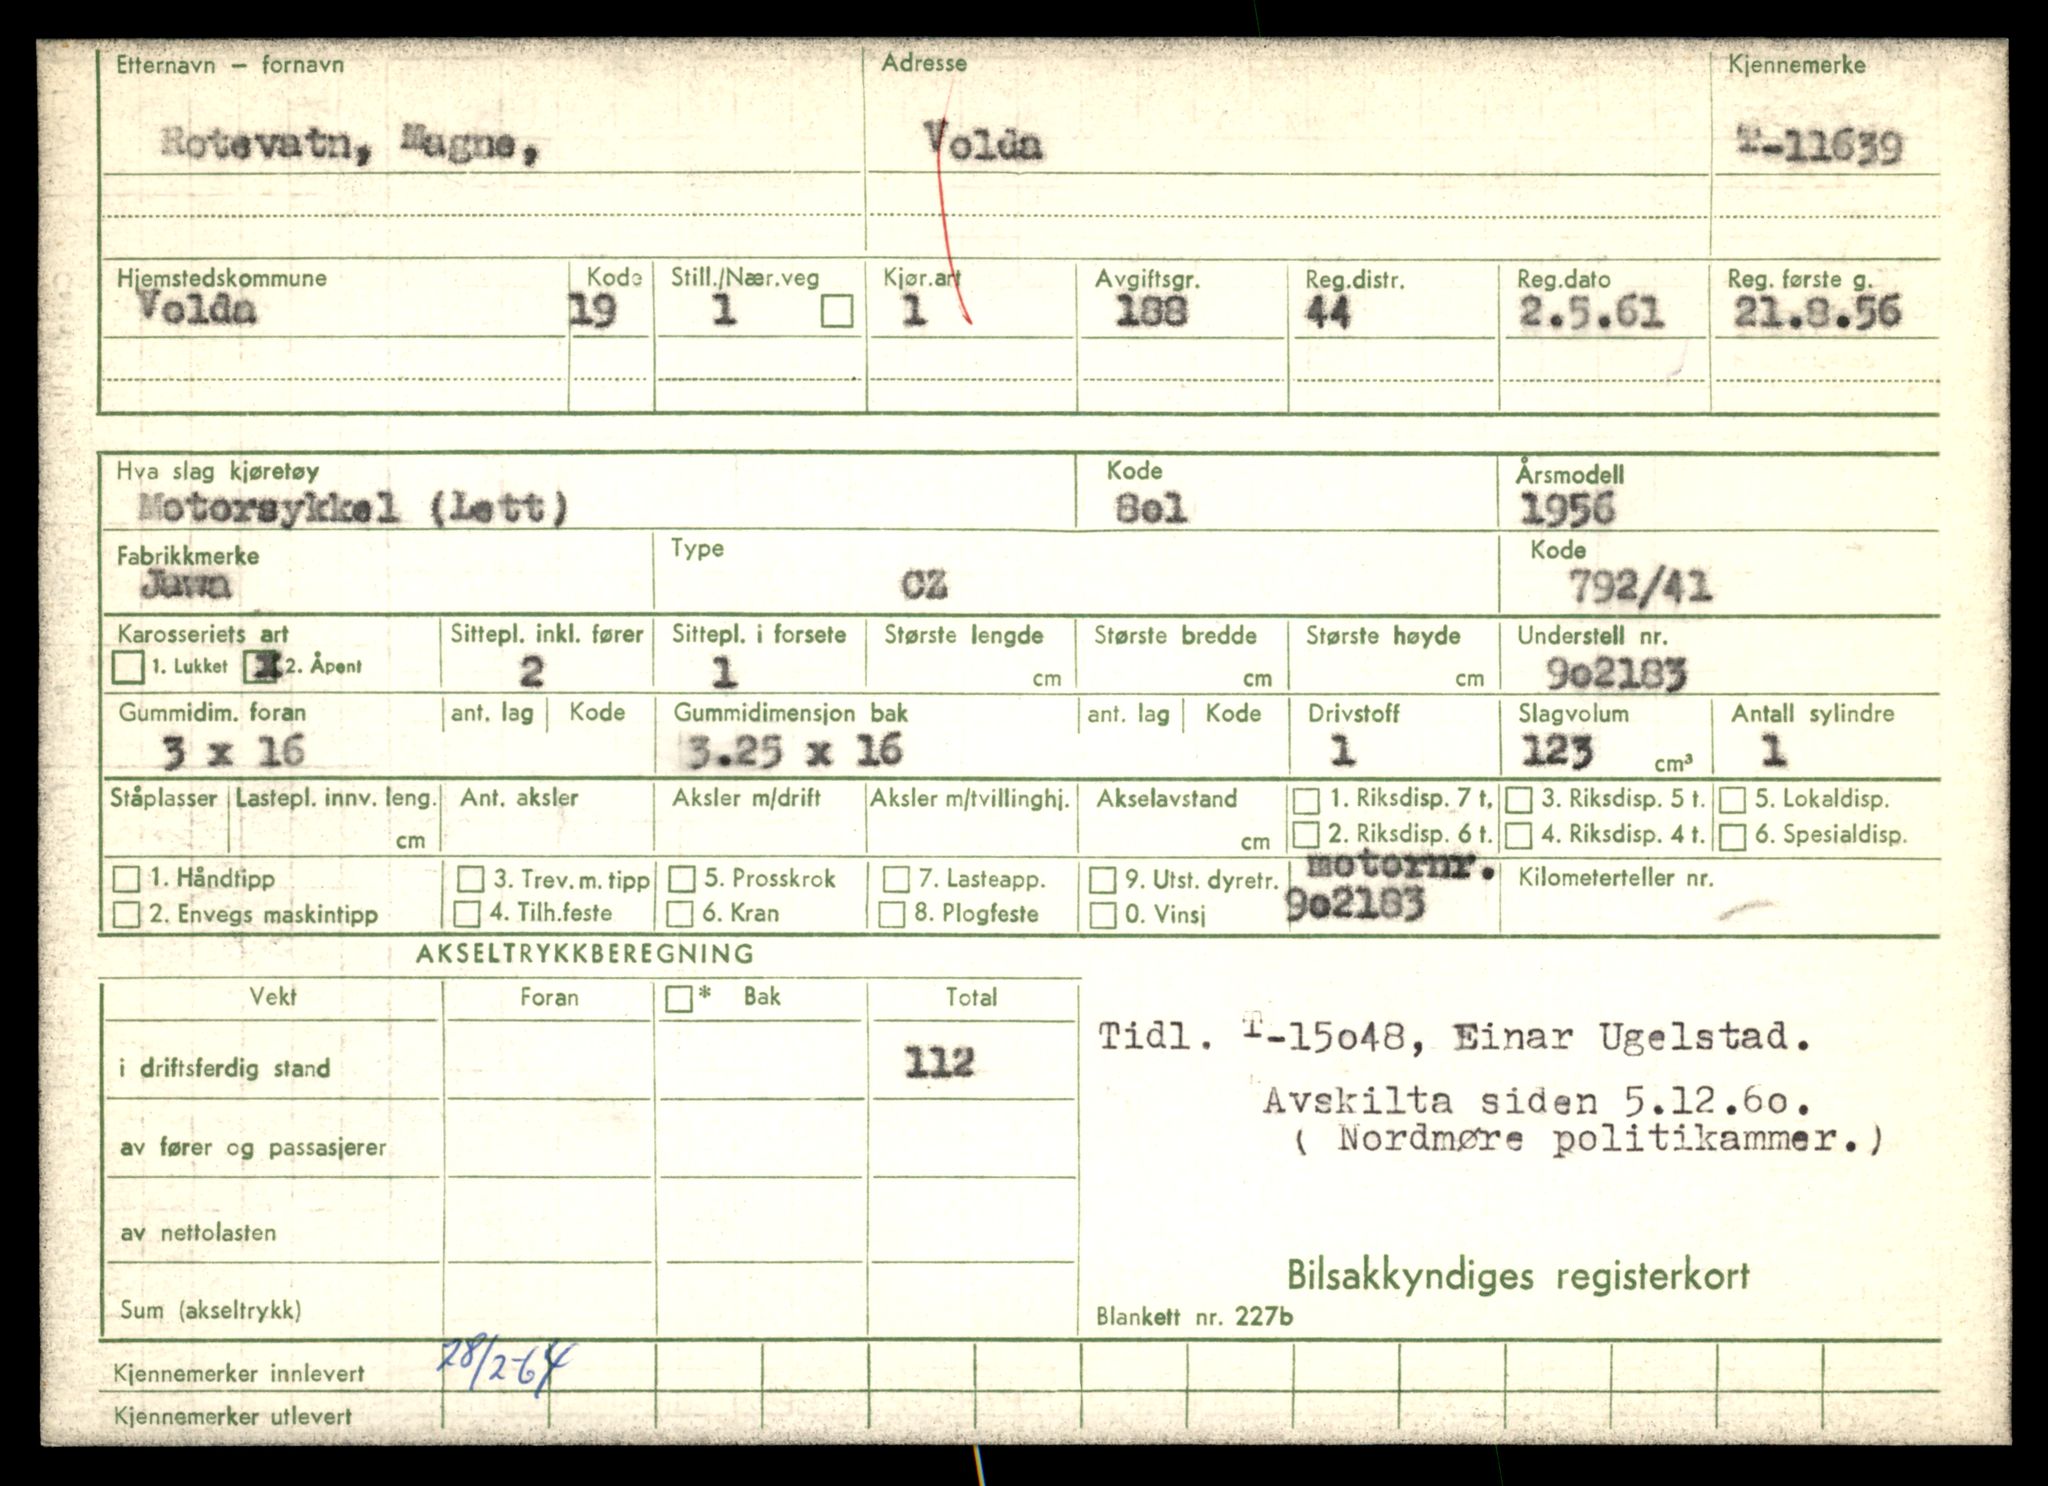 Etternavn – fornavn Adresse Kjennemerke
Rotevatn, Magne, Volda T-11639
Hjemstedskommune Kode Still./Nær.veg Kjør.art Avgiftsgr. Reg.distr. Reg.dato Reg. første g.
Volda 19 1 1 188 44 2.5.61 21.8.56
Hva slag kjøretøy Kode Årsmodell
Motorsykkel (Lett) 8o1 1956
Fabrikkmerke Type Kode
Jawa CZ 792/41
Karosseriets art Sittepl. inkl. fører Sittepl. i forsete Største lengde Største bredde Største høyde Understell nr.
1. Lukket x 2. Åpent 2 1 cm cm cm 9o2183
Gummidim. foran ant. lag Kode Gummidimensjon bak ant. lag Kode Drivstoff Slagvolum Antall sylindre
3 x 16 3.25 x 16 1 123 cm³ 1
Ståplasser Lastepl. innv. leng. Ant. aksler Aksler m/drift Aksler m/tvillinghj. Akselavstand 1. Riksdisp. 7 t. 3. Riksdisp. 5 t. 5. Lokaldisp.
cm cm 2. Riksdisp. 6 t. 4. Riksdisp. 4 t. 6. Spesialdisp.
1. Håndtipp 3. Trev. m. tipp 5. Prosskrok 7. Lasteapp. 9. Utst. dyretr. motornr. Kilometerteller nr.
2. Envegs maskintipp 4. Tilh.feste 6. Kran 8. Plogfeste 0. Vinsj 9o2183
AKSELTRYKKBEREGNING
Vekt Foran * Bak Total
i driftsferdig stand 112
Tidl. T-15o48, Einar Ugelstad.
Avskilta siden 5.12.6o.
( Nordmøre politikammer.)
av fører og passasjerer
av nettolasten
Bilsakkyndiges registerkort
Sum (akseltrykk) Blankett nr. 227b
Kjennemerker innlevert 28/2-64
Kjennemerker utlevert